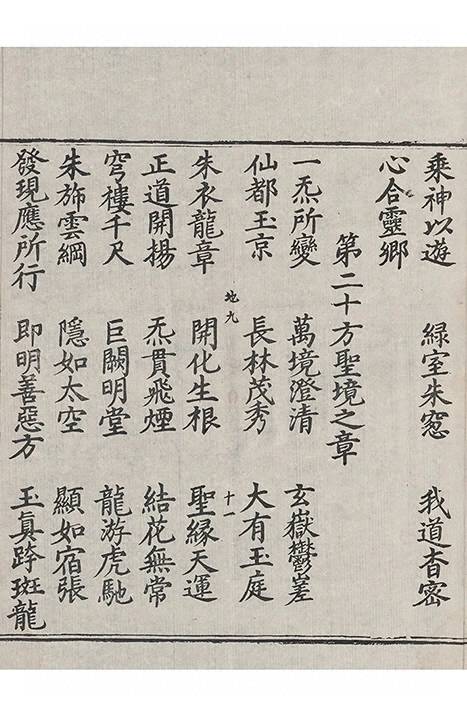 乘神以遊　綠室朱窓　我道杳密
心合靈鄉
第二十方聖境之章
一炁所變　萬境澄清　玄嶽鬱嵳
仙都玉京　長林茂秀　大有玉庭
地九　十一
朱衣龍章　開化生根　聖縁天運
正道開揚　炁貫飛煙　結花無常
穹樓千尺　巨闕明堂　龍游虎馳
朱旆雲綱　隱如太空　顯如宿張
發現應所行　即明善惡方　玉真跨斑龍